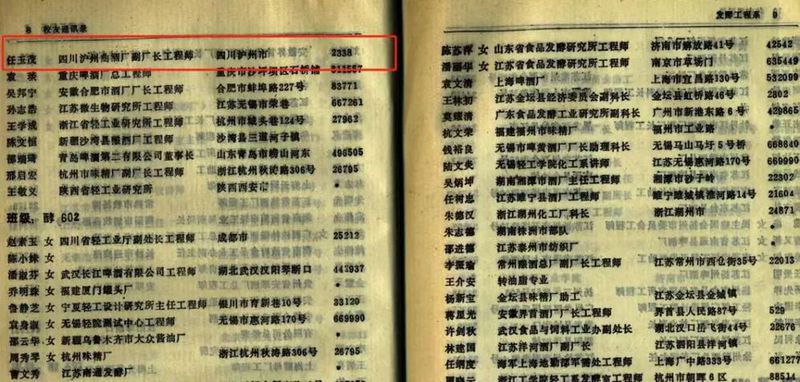 8 校友通讯录
任玉茂 四川泸州曲酒厂副厂长工程师 四川泸州市 2338
袁瑛 重庆啤酒厂总工程师 重庆市沙坪坝区石桥铺
吴邦宁 安徽合肥市酒厂厂长工程师 合肥市蚌埠路227号 83771
孙志浩 江苏微生物研究所工程师 江苏无锡市荣巷 667261
王学成 浙江省轻工业研究所工程师 杭州市 124号 27962
陈文恒 新疆沙湾酒厂工程师 沙湾县三道河子镇
邵瑞琦 青岛啤酒第二有限公司董事长 山东青岛市崂山河东 496505
邢启宏 杭州市味精厂副厂长工程师 浙江杭州秋涛路306号 26795
王敬义 陕西省轻工业研究所 陕西西安市
班级：酵602
赵素玉 女 四川省轻工业厅副处长工程师 成都市 25212
陈小妹 女
潘淑芬 女 武汉长江啤酒有限公司工程师 湖北武汉汉阳琴断口 443937
乔明珠 女 福建厦门罐头厂
鲁静芝 女 宁夏轻工设计研究所主任工程师 银川市育新巷10号 33120
袁身淑 女 无锡轻院测试中心工程师 无锡市惠河路170号 669990
邵云华 女 新疆乌鲁木齐市大众酱油厂
周秀琴 女 杭州味精厂 浙江杭州秋涛路306号 26795
曹文秀 江苏南通发酵厂
发酵工程系 9
陈苏萍 女 山东省食品发酵研究所工程师 济南市解放路41号 42542
潘丽华 女 江苏省食品发酵研究所工程师 南京市草场门 635449
袁文清 上海啤酒厂 上海市宜昌路130号 532099
王林初 江苏金坛县经济委员会副科长 金坛县虹桥路46号 2802
莫耀清 广东食品发酵工业研究所副科长 广州市新港东路6号 429865
杭文荣 福建福州市味精厂 福州市工业路
钱裕良 无锡市啤黄酒厂厂长助理科长 无锡马山马圩5号 668849
陆文奖 无锡轻工学院化工系讲师 江苏无锡惠河路170号 669990
吴炳坤 湖南湘潭市酒厂主任工程师 湘潭市沙子岭 22302
任树忠 江苏睢宁县酒厂工程师 睢宁睢城镇淮河路14号 21604
朱德汉 浙江湖州化工厂科长 浙江湖州市 24871
朱志德 湖南株洲市部队
邵进德 江苏泰州市纺织厂
李振瑜 常州酿酒总厂副厂长工程师 江苏常州市西仓街35号 22013
王介安 转油脂专业
杨新宝 金坛县味精厂助工 江苏金坛县金城镇
蒋星光 安徽界首酒厂厂长工程师 界首县人民路87号 529
许剑秋 武汉食品与饲料工业办副处长 湖北汉口岳飞街44号 22676
林建国 江苏洋河酒厂副厂长 江苏泗阳县洋河镇
任炯度 海军上海地勤部军需处工程师 上海广中路333号 661277